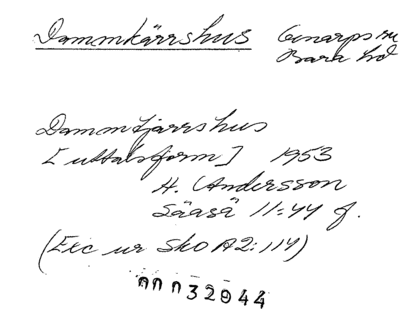 Dammkärrshus Genarps sn
Bara hd
Dammtjärrshus
[uttalsform] 1953
H. Andersson
Sääsä 11:44 f.
(Exc ur SkO A2:114)
032944